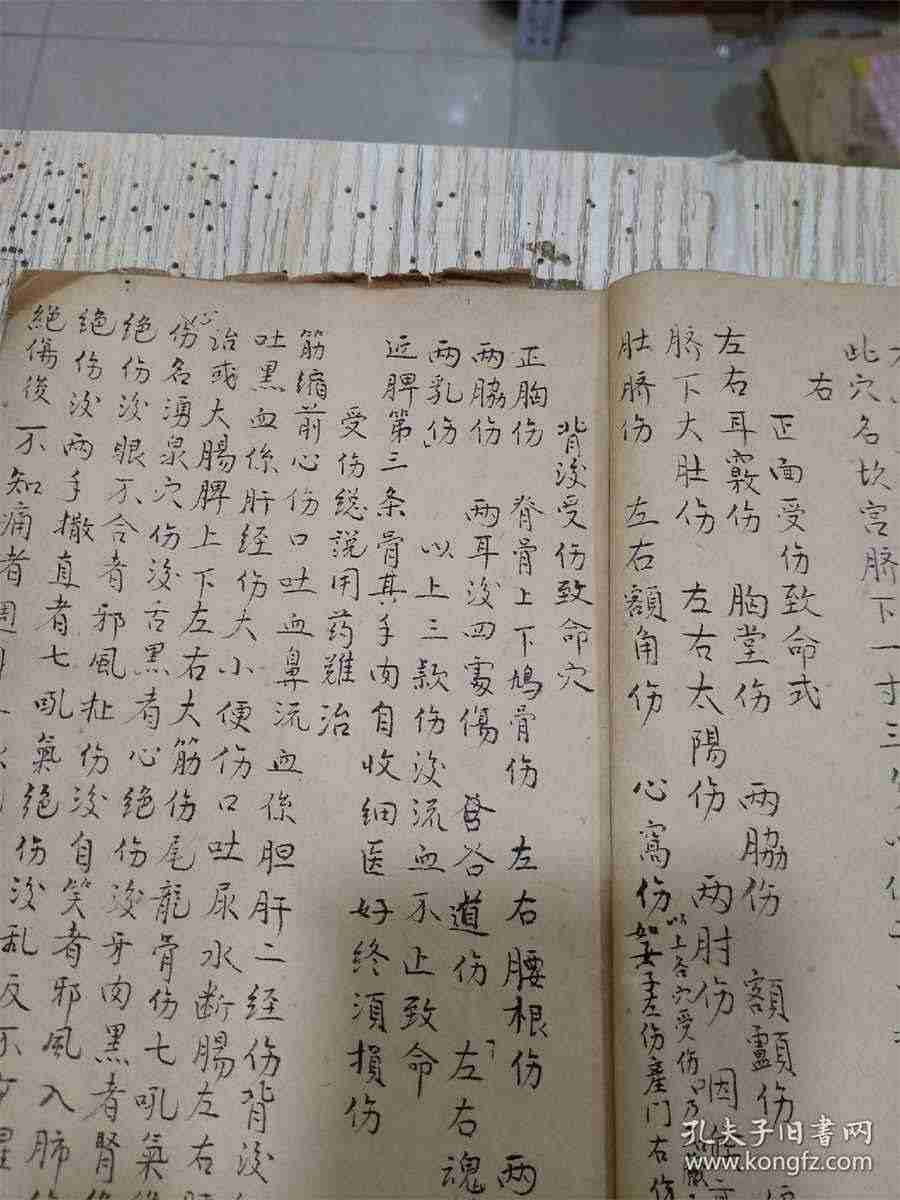 此穴名坎宫脐下一寸三
右
正面受伤致命式
左右耳竅伤 胸堂伤 两脇伤 額顖伤
脐下大肚伤 左右太陽伤 两肘伤 咽
肚脐伤 左右額角伤 心窩伤 以上各穴受伤 如女子左伤産门右伤
背後受伤致命穴
正胸伤 脊骨上下鳩骨伤 左右腰根伤 两
两脇伤 两耳後四處傷 谷道伤 左右魂
两乳伤 以上三款伤後流血不止致命
近脾第三条骨其手肉自收细医好终須損伤
受伤総説用药難治
筋缩前心伤口吐血鼻流血係胆肝二经伤背後
吐黑血係肝经伤大小便伤口吐尿水断腸左右
治或大腸脾上下左右大筋伤尾龍骨伤七吼氣
伤名湧泉穴伤後舌黑者心绝伤後牙肉黑者腎
绝伤後眼不合者邪風
伤後自笑者邪風入肺
绝伤後两手撒直者七吼氣绝伤後乱反不
絕傷後不知痛者週
孔夫子旧书网
www.kongfz.com